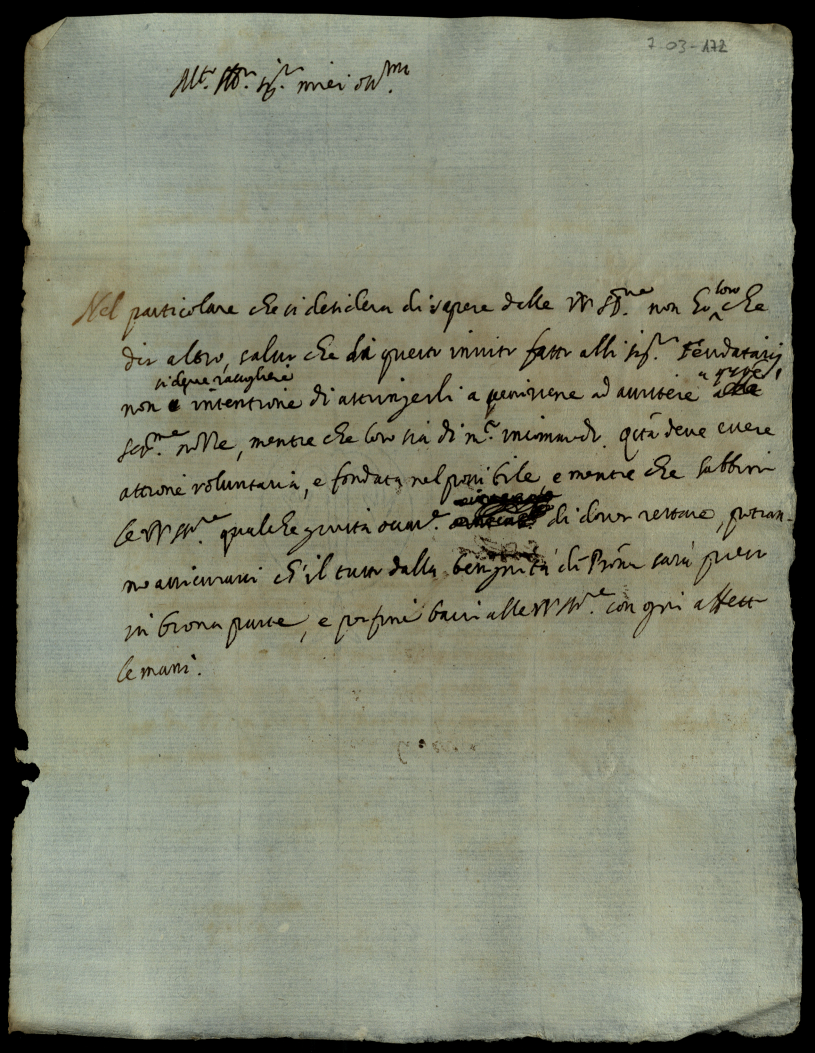 7-03-172
Mto. Illri. sigri. miei oss.mi
Nel particolare che si desidera di sapere dalle VV SS.rie non ho loro che
dir altro, salvo che di questo invito fatto alli sigri. Feudatarij
si deve raccogliere
non è intentione di astringerli a venirsene ad assistere a queste
ser.me nozze, mentre che loro sia di incommodo. deve essere
attione voluntaria, e fondata nel possibile, e mentre che habbino
le VV SS.rie qualche giusta di dover restare, potran-
no assicurarsi ch'il tutto dalla benignità di sarà preso
in buona parte, e per fine bacio alle VV SS.rie con ogni affetto
le mani.